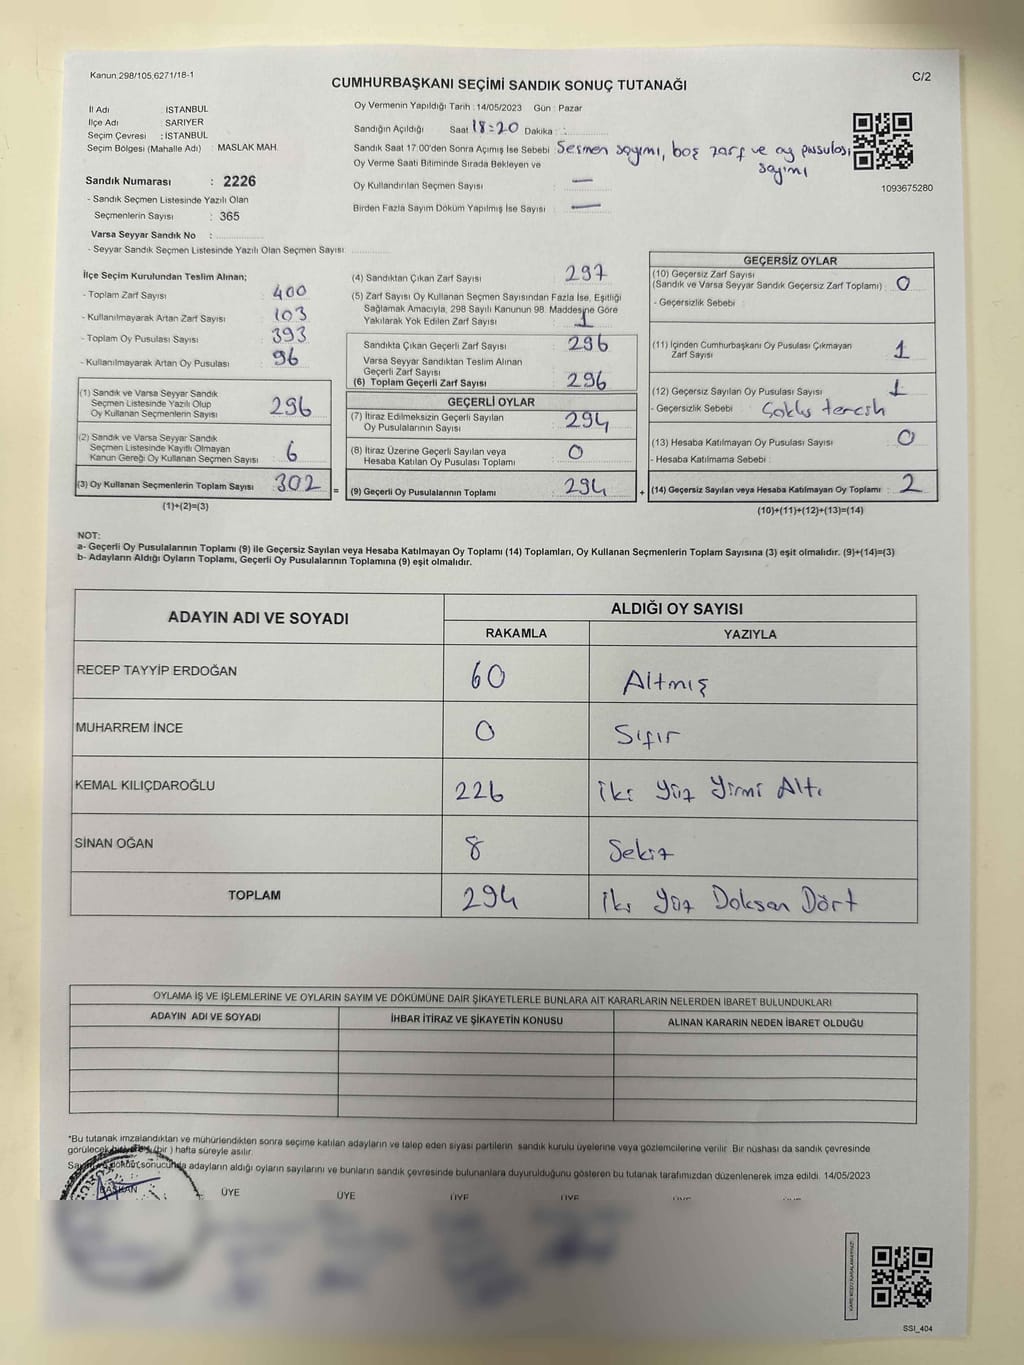 Kanun.298/105,6271/18-1
C/2
CUMHURBAŞKANI SEÇİMİ SANDIK SONUÇ TUTANAĞI
İl Adı İSTANBUL
İlçe Adı SARIYER
Seçim Çevresi : İSTANBUL
Seçim Bölgesi (Mahalle Adı) : MASLAK MAH.
Oy Vermenin Yapıldığı Tarih : 14/05/2023 Gün : Pazar
Sandığın Açıldığı Saat 18:20 Dakika :
Sandık Saat 17:00'den Sonra Açımış İse Sebebi Seçmen sayımı, boş zarf ve oy pusulası
sayımı
Oy Verme Saati Bitiminde Sırada Bekleyen ve
Oy Kullandırılan Seçmen Sayısı —
Birden Fazla Sayım Döküm Yapılmış İse Sayısı —
1093675280
Sandık Numarası : 2226
- Sandık Seçmen Listesinde Yazılı Olan
Seçmenlerin Sayısı : 365
Varsa Seyyar Sandık No :
- Seyyar Sandık Seçmen Listesinde Yazılı Olan Seçmen Sayısı:
İlçe Seçim Kurulundan Teslim Alınan;
- Toplam Zarf Sayısı : 400
- Kullanılmayarak Artan Zarf Sayısı : 103
- Toplam Oy Pusulası Sayısı : 393
- Kullanılmayarak Artan Oy Pusulası : 96
(1) Sandık ve Varsa Seyyar Sandık
Seçmen Listesinde Yazılı Olup
Oy Kullanan Seçmenlerin Sayısı : 296
(2) Sandık ve Varsa Seyyar Sandık
Seçmen Listesinde Kayıtlı Olmayan
Kanun Gereği Oy Kullanan Seçmen Sayısı : 6
(3) Oy Kullanan Seçmenlerin Toplam Sayısı : 302
(1)+(2)=(3)
(4) Sandıktan Çıkan Zarf Sayısı : 297
(5) Zarf Sayısı Oy Kullanan Seçmen Sayısından Fazla İse, Eşitliği
Sağlamak Amacıyla, 298 Sayılı Kanunun 98. Maddesine Göre
Yakılarak Yok Edilen Zarf Sayısı : 1
Sandıkta Çıkan Geçerli Zarf Sayısı : 296
Varsa Seyyar Sandıktan Teslim Alınan
Geçerli Zarf Sayısı
(6) Toplam Geçerli Zarf Sayısı : 296
GEÇERLİ OYLAR
(7) İtiraz Edilmeksizin Geçerli Sayılan
Oy Pusulalarının Sayısı : 294
(8) İtiraz Üzerine Geçerli Sayılan veya
Hesaba Katılan Oy Pusulası Toplamı : 0
= (9) Geçerli Oy Pusulalarının Toplamı : 294
GEÇERSİZ OYLAR
(10) Geçersiz Zarf Sayısı
(Sandık ve Varsa Seyyar Sandık Geçersiz Zarf Toplamı) : 0
- Geçersizlik Sebebi :
(11) İçinden Cumhurbaşkanı Oy Pusulası Çıkmayan
Zarf Sayısı 1
(12) Geçersiz Sayılan Oy Pusulası Sayısı : 1
- Geçersizlik Sebebi : Çoklu tercih
(13) Hesaba Katılmayan Oy Pusulası Sayısı : 0
- Hesaba Katılmama Sebebi :
+ (14) Geçersiz Sayılan veya Hesaba Katılmayan Oy Toplamı : 2
(10)+(11)+(12)+(13)=(14)
NOT:
a- Geçerli Oy Pusulalarının Toplamı (9) ile Geçersiz Sayılan veya Hesaba Katılmayan Oy Toplamı (14) Toplamları, Oy Kullanan Seçmenlerin Toplam Sayısına (3) eşit olmalıdır. (9)+(14)=(3)
b- Adayların Aldığı Oyların Toplamı, Geçerli Oy Pusulalarının Toplamına (9) eşit olmalıdır.
ADAYIN ADI VE SOYADI ALDIĞI OY SAYISI
RAKAMLA YAZIYLA
RECEP TAYYİP ERDOĞAN 60 Altmış
MUHARREM İNCE 0 Sıfır
KEMAL KILIÇDAROĞLU 226 iki yüz yirmi Altı
SİNAN OĞAN 8 Sekiz
TOPLAM 294 iki yüz Doksan Dört
OYLAMA İŞ VE İŞLEMLERİNE VE OYLARIN SAYIM VE DÖKÜMÜNE DAİR ŞİKAYETLERLE BUNLARA AİT KARARLARIN NELERDEN İBARET BULUNDUKLARI
ADAYIN ADI VE SOYADI İHBAR İTİRAZ VE ŞİKAYETİN KONUSU ALINAN KARARIN NEDEN İBARET OLDUĞU
*Bu tutanak imzalandıktan ve mühürlendikten sonra seçime katılan adayların ve talep eden siyasi partilerin sandık kurulu üyelerine veya gözlemcilerine verilir. Bir nüshası da sandık çevresinde
görülecek (bir) hafta süreyle asılır.
sonucunda adayların aldığı oyların sayılarını ve bunların sandık çevresinde bulunanlara duyurulduğunu gösteren bu tutanak tarafımızdan düzenlenerek imza edildi. 14/05/2023
BAŞKAN ÜYE ÜYE ÜYE ÜYE
SSI_404